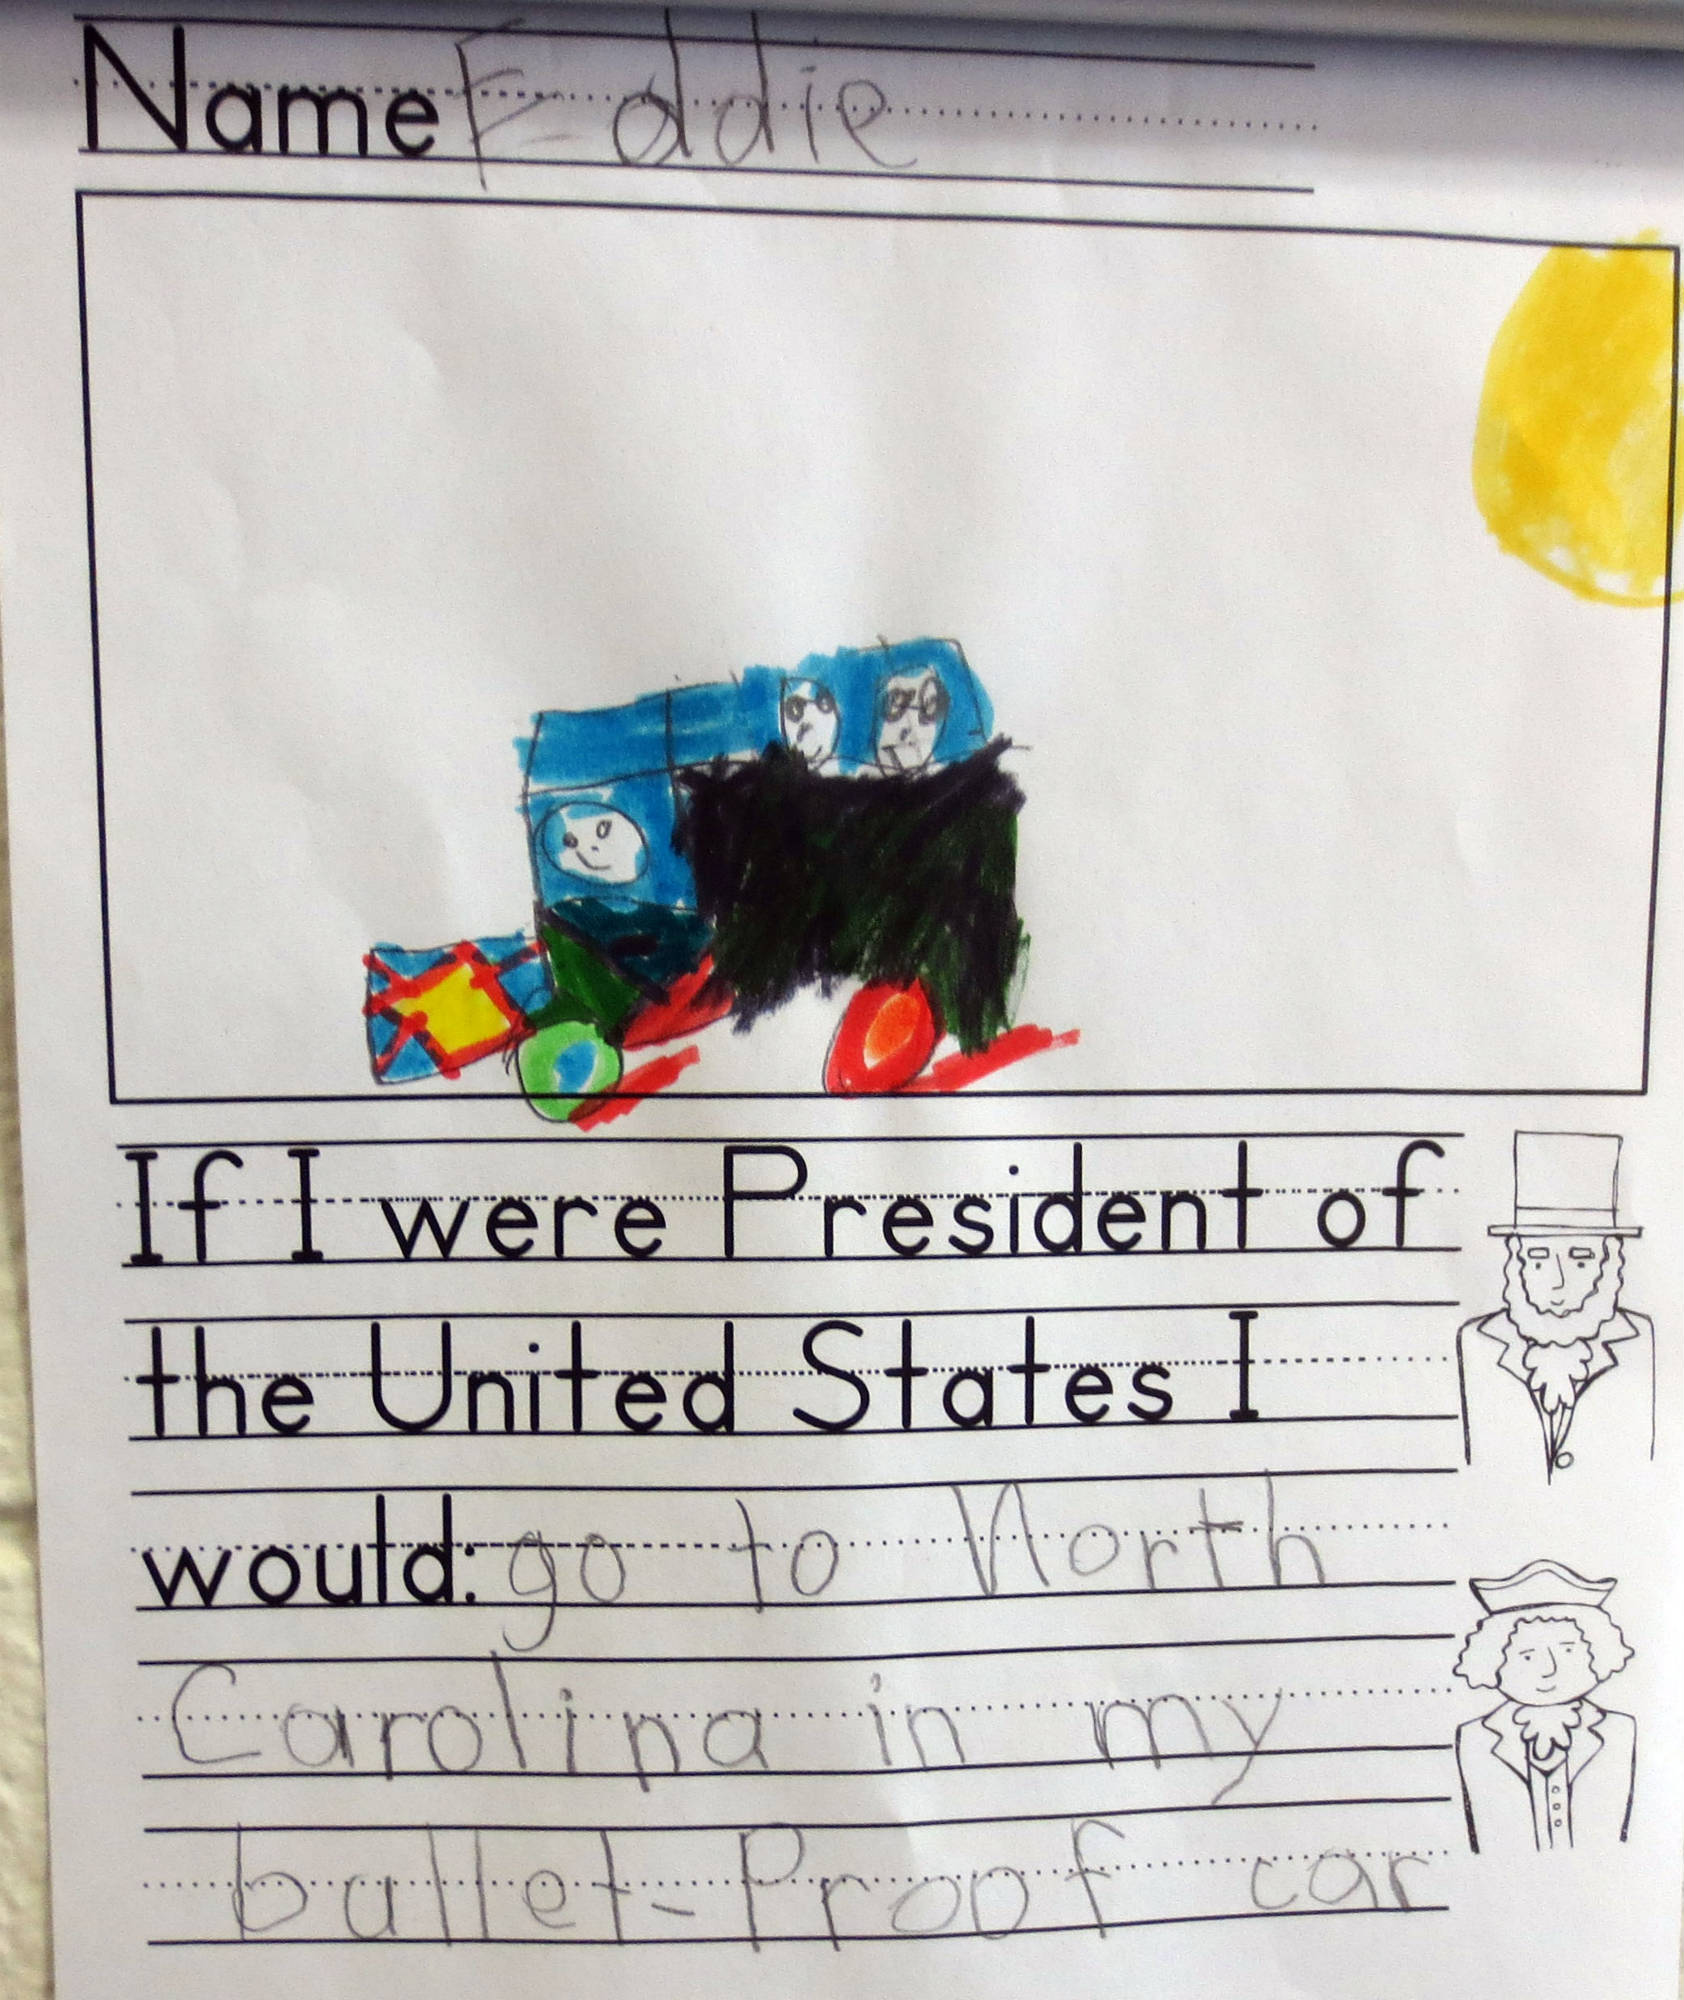 Name Eddie
If I were President of
the United States I
would: go to North
Carolina in my
bullet-Proof car